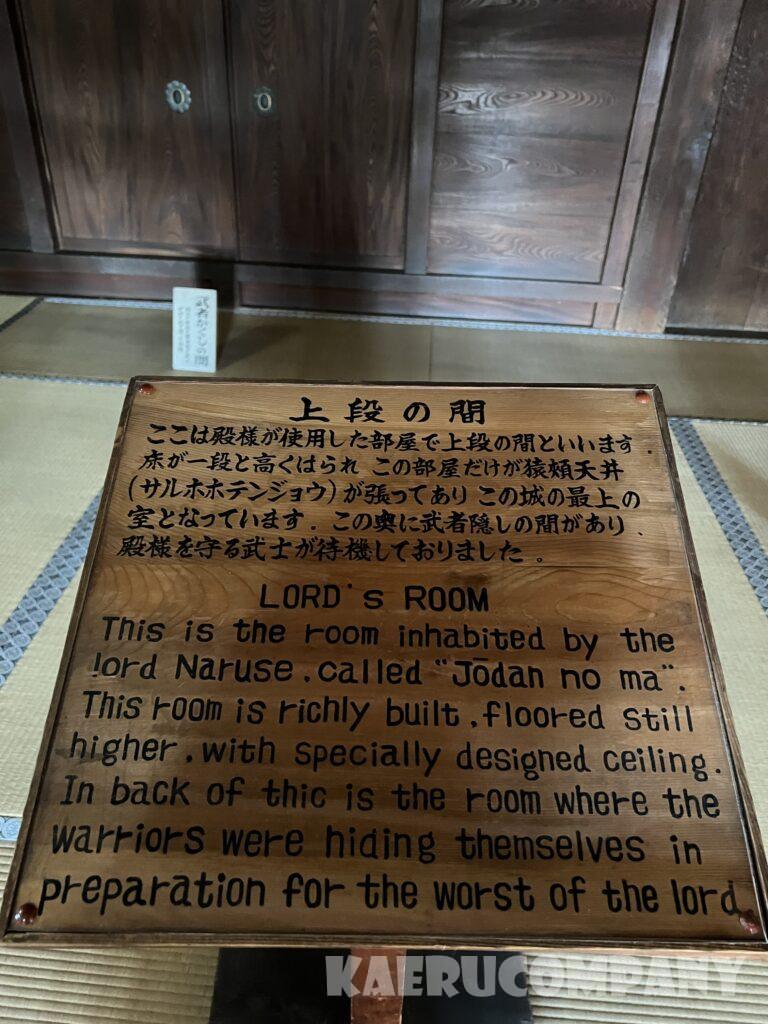 武者かくしの間
上段の間
ここは殿様が使用した部屋で上段の間といいます.
床が一段と高くはられ この部屋だけが猿頬天井
(サルホホテンジョウ)が張ってあり この城の最上の
室となっています. この奥に武者隠しの間があり、
殿様を守る武士が待機しておりました。
LORD's ROOM
This is the room inhabited by the
lord Naruse, called "Jōdan no ma".
This room is richly built, floored still
higher, with specially designed ceiling.
In back of thic is the room where the
warriors were hiding themselves in
preparation for the worst of the lord
KAERUCOMPANY